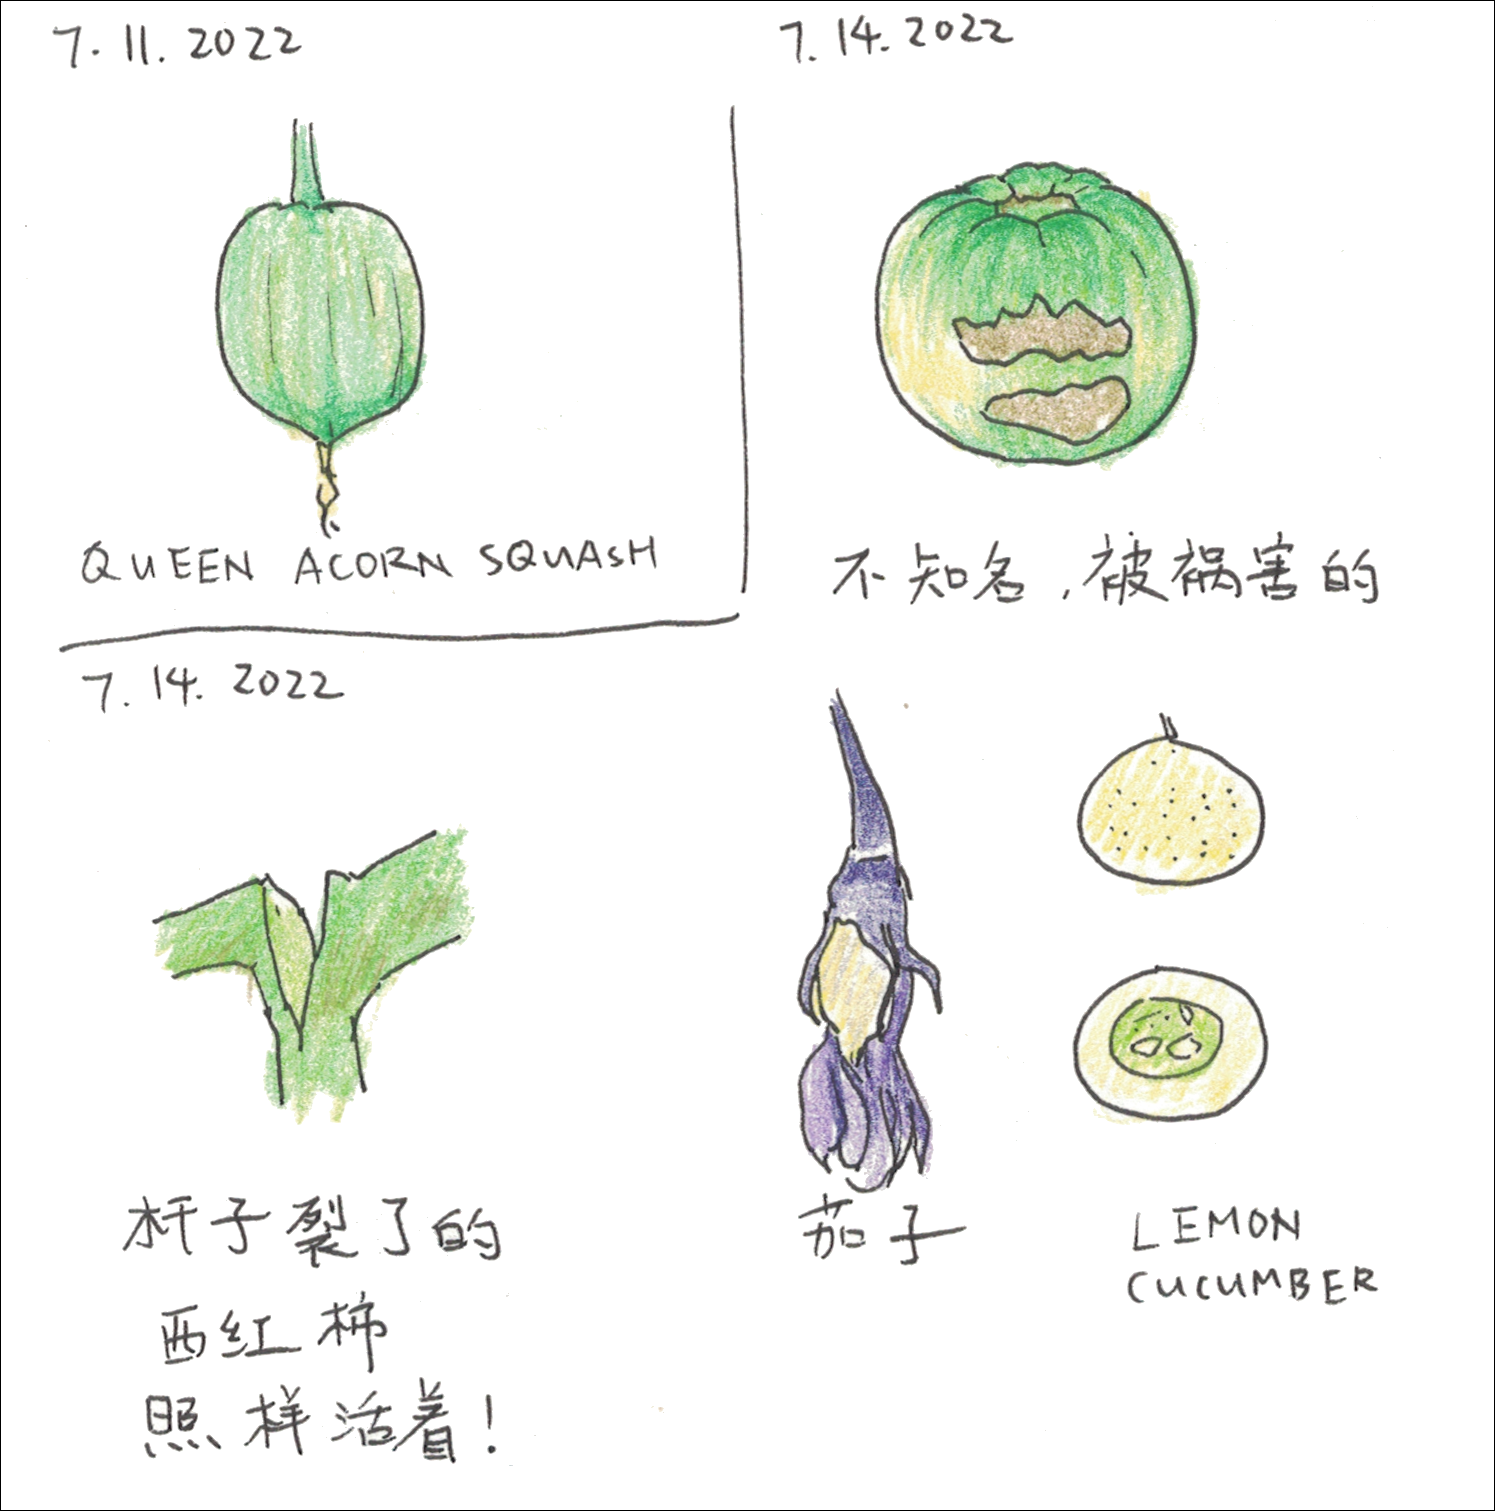 7. 11. 2022
QUEEN ACORN SQUASH
7. 14. 2022
不知名，被祸害的
7. 14. 2022
杆子裂了的
西红柿
照样活着！
茄子
LEMON
CUCUMBER